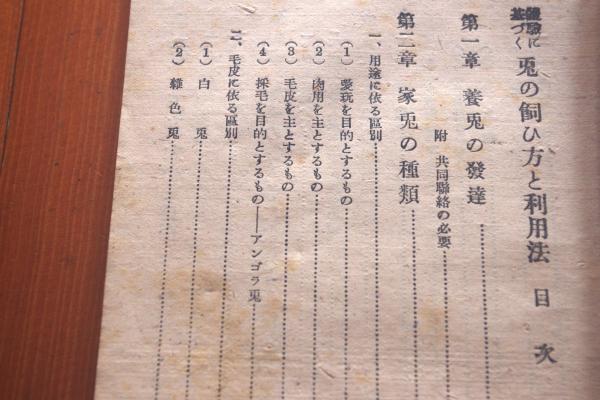 體驗に基づく 兎の飼ひ方と利用法 目次
第一章 養兎の發達
附 共同聯絡の必要
第二章 家兎の種類
一、用途に依る區別
(1) 愛玩を目的とするもの
(2) 肉用を主とするもの
(3) 毛皮を主とするもの
(4) 採毛を目的とするもの——アンゴラ兎
二、毛皮に依る區別
(1) 白兎
(2) 雜色兎